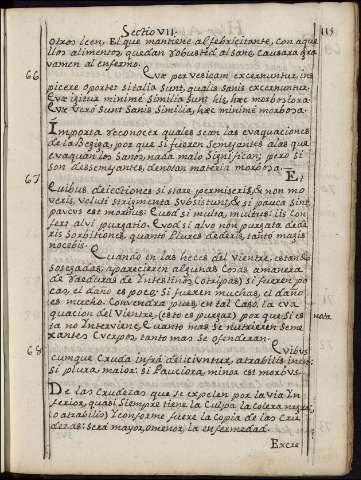 Sectio VII.
115
otros icen, El que mantiene al febricitante, con aque
llos alimentos quedan robusted al sano, causara gra
vamen al enfermo.
66
Quæ per vesicam excernuntur, ins
picere oportet si talia sunt, qualis sanis excernuntur.
Quæ igitur minimè similia sunt his, hæc morbosiora.
Quæ verò sunt sanis similia, hæc minimè morbosa.
Importa reconocer quales sean las evaquaciones
de la Bexiga, porque si fueren semejantes alas que
evaquan los sanos, nada malo significan; pero si
son desemejantes, denotan materia morbosa.
Et
67
quibus deiectiones si stare permiseris, & non mo
veris, veluti strigmenta subsistunt, & si pauca sint
paucus est morbus: Quod si multa, multus: iis con
fert alvi purgatio. Quod si alvo non purgata dede
ris sorbitiones, quantò plures dederis, tantò magis
nocebis.
Quando en las heces del vientre, estando
sosegadas, aparecieren algunas cosas amanera
de raeduras de Intestinos, (ò tripas) si fueren po
cas, el daño es poco; si fueren muchas, el daño
es mucho. Convendra pues, en tal caso, la eva
quacion del vientre, (esto es purgar) porque si es
ta no Interviene, Quanto mas se nutrieren seme
nota
xantes Cuerpos, tanto mas se ofenderan.
68
Quibus
cumque cruda infrà deiiciuntur, ab atrabilis [
si plura maior: si Pauciora, minor est morbus.
De las crudezas que se expelen por la via In
ferior, quasi siempre tiene la Culpa la colera negra,
(o atrabilis) Y conforme fuere la Copia de las Cru
dezas: sera mayor, o menor, la enfermedad.
Excre